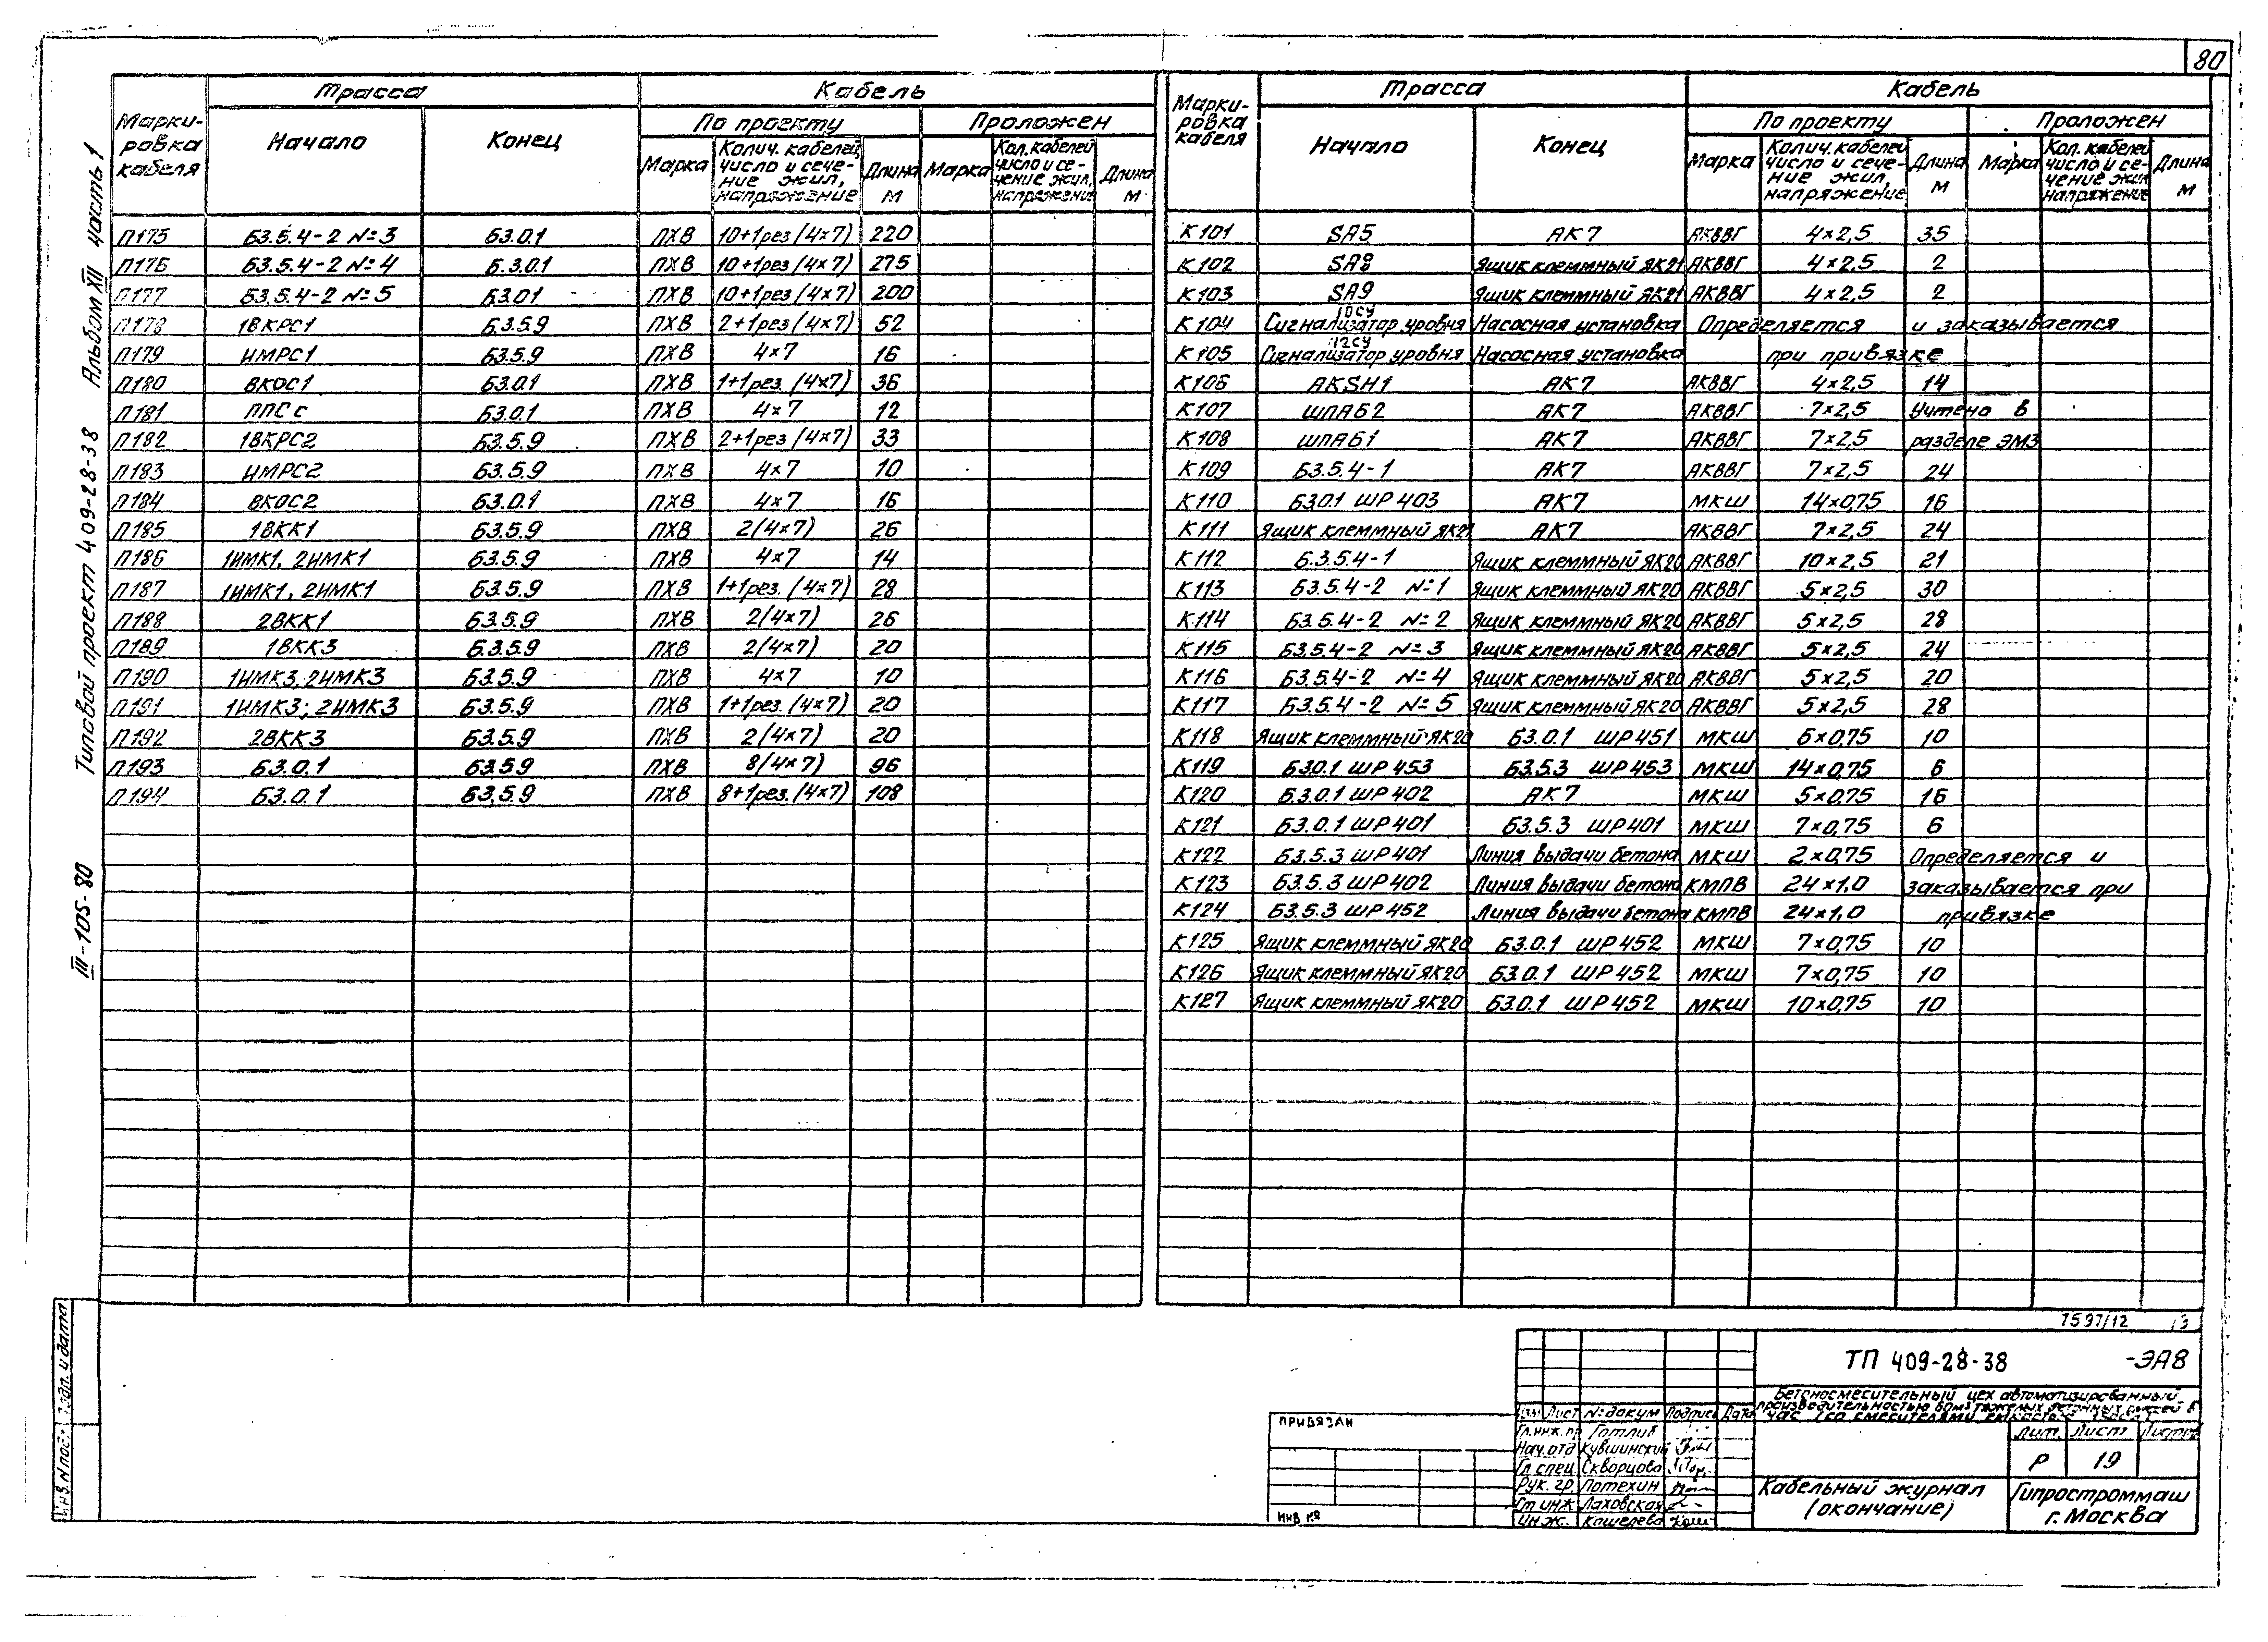 80
Альбом XIII часть 1
Типовой проект 409-28-38
III-105-80
Марки-ровка кабеля | Трасса | Кабель
Начало | Конец | По проекту | Проложен
Марка | Колич. кабелей, число и сече-ние жил, напряжение | Длина м | Марка | Кол. кабелей число и се-чение жил, напряжение | Длина м
П175 БЗ.5.4-2 №3 БЗ.0.1 ПХВ 10+1рез(4×7) 220
П176 БЗ.5.4-2 №4 Б.З.0.1 ПХВ 10+1рез(4×7) 275
П177 БЗ.5.4-2 №5 БЗ.01 ПХВ 10+1рез(4×7) 200
П178 1ВКРС1 БЗ.5.9 ПХВ 2+1рез(4×7) 52
П179 ИМРС1 БЗ.5.9 ПХВ 4×7 16
П180 ВКОС1 БЗ.0.1 ПХВ 1+1рез.(4×7) 36
П181 ППСс БЗ.0.1 ПХВ 4×7 12
П182 1ВКРС2 БЗ.5.9 ПХВ 2+1рез(4×7) 33
П183 ИМРС2 БЗ.5.9 ПХВ 4×7 10
П184 ВКОС2 БЗ.0.1 ПХВ 4×7 16
П185 1ВКК1 БЗ.5.9 ПХВ 2(4×7) 26
П186 1ИМК1, 2ИМК1 БЗ.5.9 ПХВ 4×7 14
П187 1ИМК1, 2ИМК1 БЗ.5.9 ПХВ 1+1рез.(4×7) 28
П188 2ВКК1 БЗ.5.9 ПХВ 2(4×7) 26
П189 1ВКК3 БЗ.5.9 ПХВ 2(4×7) 20
П190 1ИМК3, 2ИМК3 БЗ.5.9 ПХВ 4×7 10
П191 1ИМК3; 2ИМК3 БЗ.5.9 ПХВ 1+1рез.(4×7) 20
П192 2ВКК3 БЗ.5.9 ПХВ 2(4×7) 20
П193 БЗ.0.1 БЗ.5.9 ПХВ 8(4×7) 96
П194 БЗ.0.1 БЗ.5.9 ПХВ 8+1рез.(4×7) 108
Марки-ровка кабеля | Трасса | Кабель
Начало | Конец | По проекту | Проложен
Марка | Колич. кабелей число и сече-ние жил, напряжение | Длина м | Марка | Кол. кабелей число и се-чение жил напряжение | Длина м
К101 SA5 АК7 АКВВГ 4×2,5 35
К102 SA8 Ящик клеммный ЯК21 АКВВГ 4×2,5 2
К103 SA9 Ящик клеммный ЯК21 АКВВГ 4×2,5 2
К104 Сигнализатор уровня 10СУ Насосная установка Определяется и заказывается
К105 Сигнализатор уровня 12СУ Насосная установка при привязке
К106 AKSH1 АК7 АКВВГ 4×2,5 14
К107 ШПАБ2 АК7 АКВВГ 7×2,5 Учтено в
К108 ШПАБ1 АК7 АКВВГ 7×2,5 разделе ЭМ3
К109 БЗ.5.4-1 АК7 АКВВГ 7×2,5 24
К110 БЗ.0.1 ШР403 АК7 МКШ 14×0,75 16
К111 Ящик клеммный ЯК21 АК7 АКВВГ 7×2,5 24
К112 Б.З.5.4-1 Ящик клеммный ЯК20 АКВВГ 10×2,5 21
К113 БЗ.5.4-2 №1 Ящик клеммный ЯК20 АКВВГ 5×2,5 30
К114 БЗ.5.4-2 №2 Ящик клеммный ЯК20 АКВВГ 5×2,5 28
К115 БЗ.5.4-2 №3 Ящик клеммный ЯК20 АКВВГ 5×2,5 24
К116 БЗ.5.4-2 №4 Ящик клеммный ЯК20 АКВВГ 5×2,5 20
К117 БЗ.5.4-2 №5 Ящик клеммный ЯК20 АКВВГ 5×2,5 28
К118 Ящик клеммный ЯК20 БЗ.0.1 ШР451 МКШ 6×0,75 10
К119 БЗ.0.1 ШР453 БЗ.5.3 ШР453 МКШ 14×0,75 6
К120 Б.З.0.1 ШР402 АК7 МКШ 5×0,75 16
К121 БЗ.0.1 ШР401 БЗ.5.3 ШР401 МКШ 7×0,75 6
К122 БЗ.5.3 ШР401 Линия выдачи бетона МКШ 2×0,75 Определяется и
К123 БЗ.5.3 ШР402 Линия выдачи бетона КМПВ 24×1,0 заказывается при
К124 БЗ.5.3 ШР452 Линия выдачи бетона КМПВ 24×1,0 привязке
К125 Ящик клеммный ЯК20 БЗ.0.1 ШР452 МКШ 7×0,75 10
К126 Ящик клеммный ЯК20 БЗ.0.1 ШР452 МКШ 7×0,75 10
К127 Ящик клеммный ЯК20 БЗ.0.1 ШР452 МКШ 10×0,75 10
7597/12
ТП 409-28-38 -ЭА8
Бетоносмесительный цех автоматизированный
Изм Лист №докум Подпись Дата
Гл.инж.пр Готлиб
Нач.отд Кувшинский
Гл.спец Скворцова
Рук. гр. Потехин
Ст.инж Лаховская
Инж. Кошелева
Лит. Лист Листов
Р 19
Кабельный журнал
(окончание)
Гипростроммаш
г. Москва
Привязан
Инв №
Инв.№подл. Подп. и дата